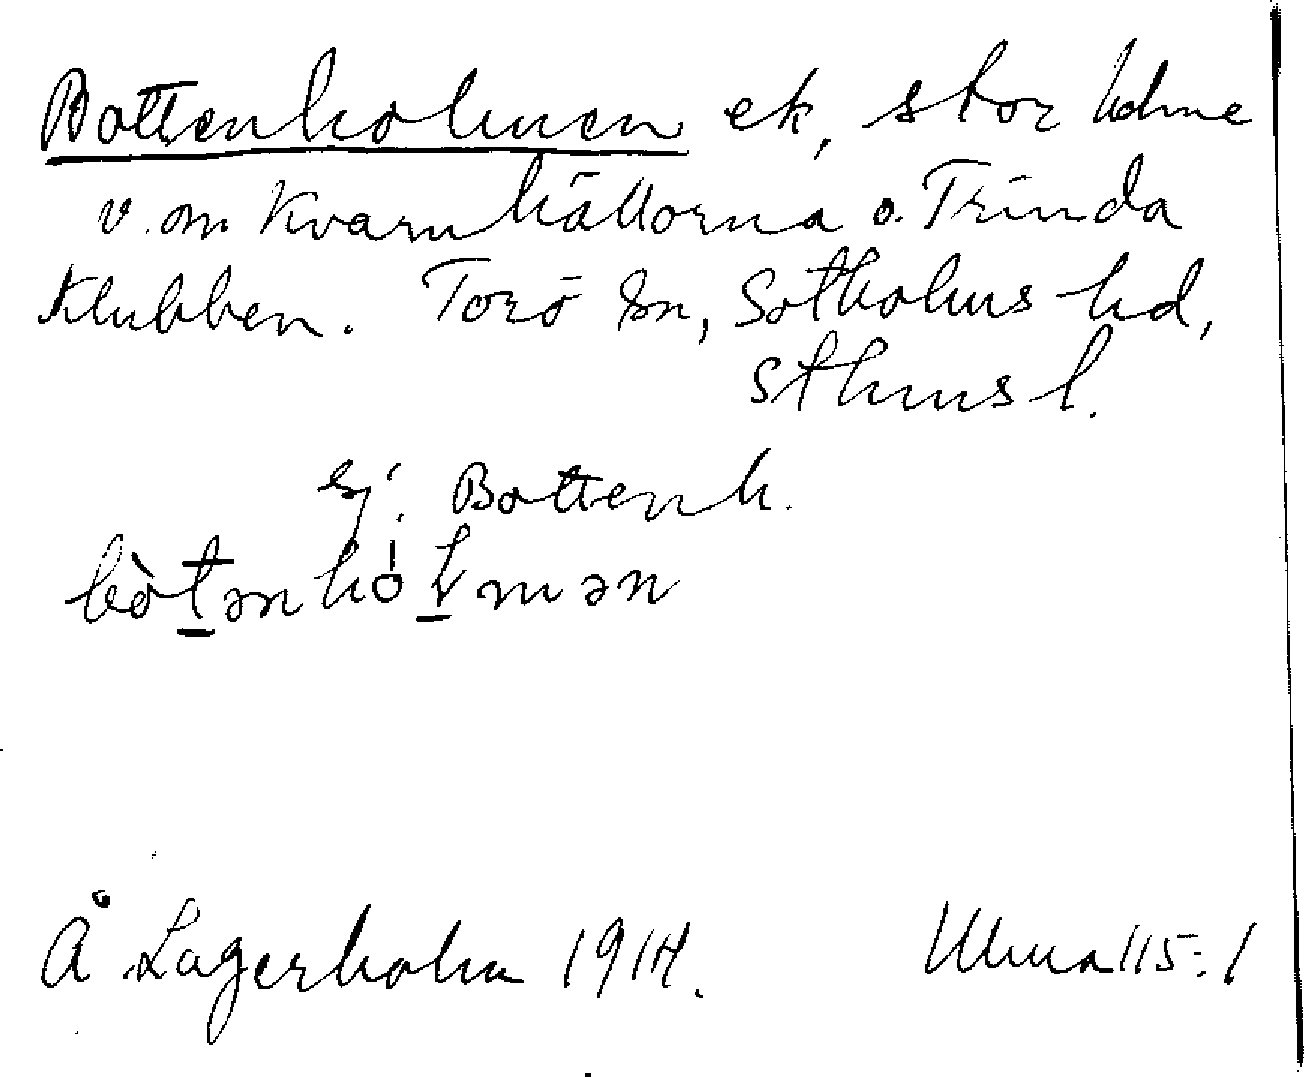 Bottenholmen ek, stor holme
v. om Kvarnhällorna o. Trinda
Klubben. Torö sn, Sotholms hd,
Sthms l.
Ej: Bottenh.
bòtənhólmən
Å Lagerholm 1914.
Ulma 115:1